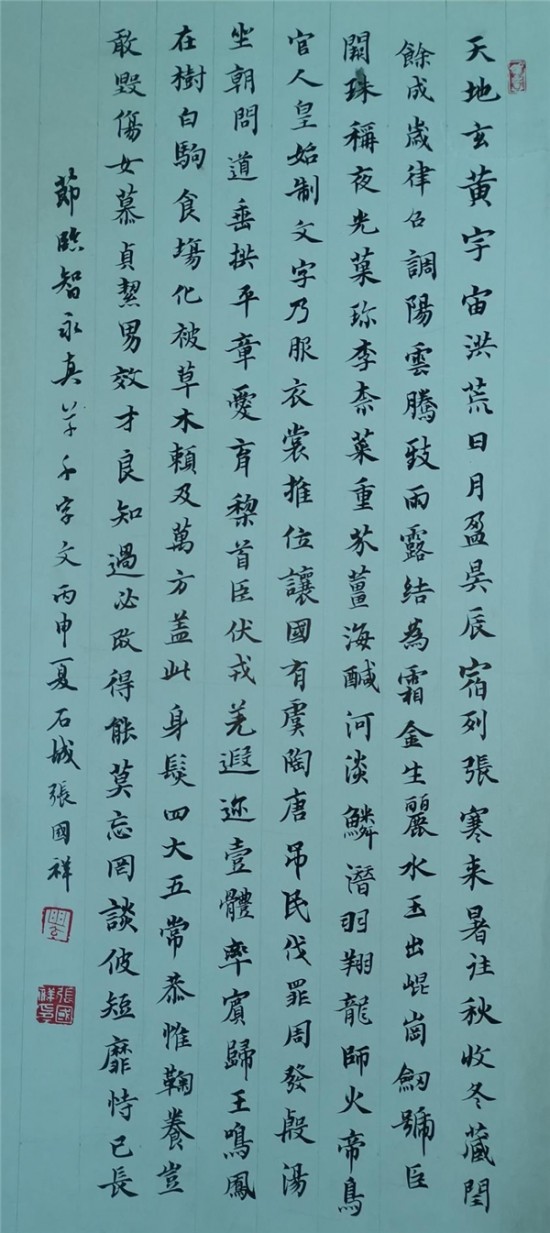 天地玄黄宇宙洪荒日月盈昃辰宿列張寒来暑往秋收冬藏閏
餘成歲律召調陽雲騰致雨露結為霜金生麗水玉出崐崗劒號巨
闕珠稱夜光菓珎李柰菜重芥薑海醎河淡鱗潛羽翔龍師火帝鳥
官人皇始制文字乃服衣裳推位讓國有虞陶唐吊民伐罪周發殷湯
坐朝問道垂拱平章愛育黎首臣伏戎羌遐迩壹體率賓歸王鳴鳳
在樹白駒食塲化被草木賴及萬方盖此身髮四大五常恭惟鞠養豈
敢毀傷女慕貞絜男效才良知過必改得能莫忘罔談彼短靡恃己長
節臨智永真草千字文丙申夏石城張國祥
張國祥印